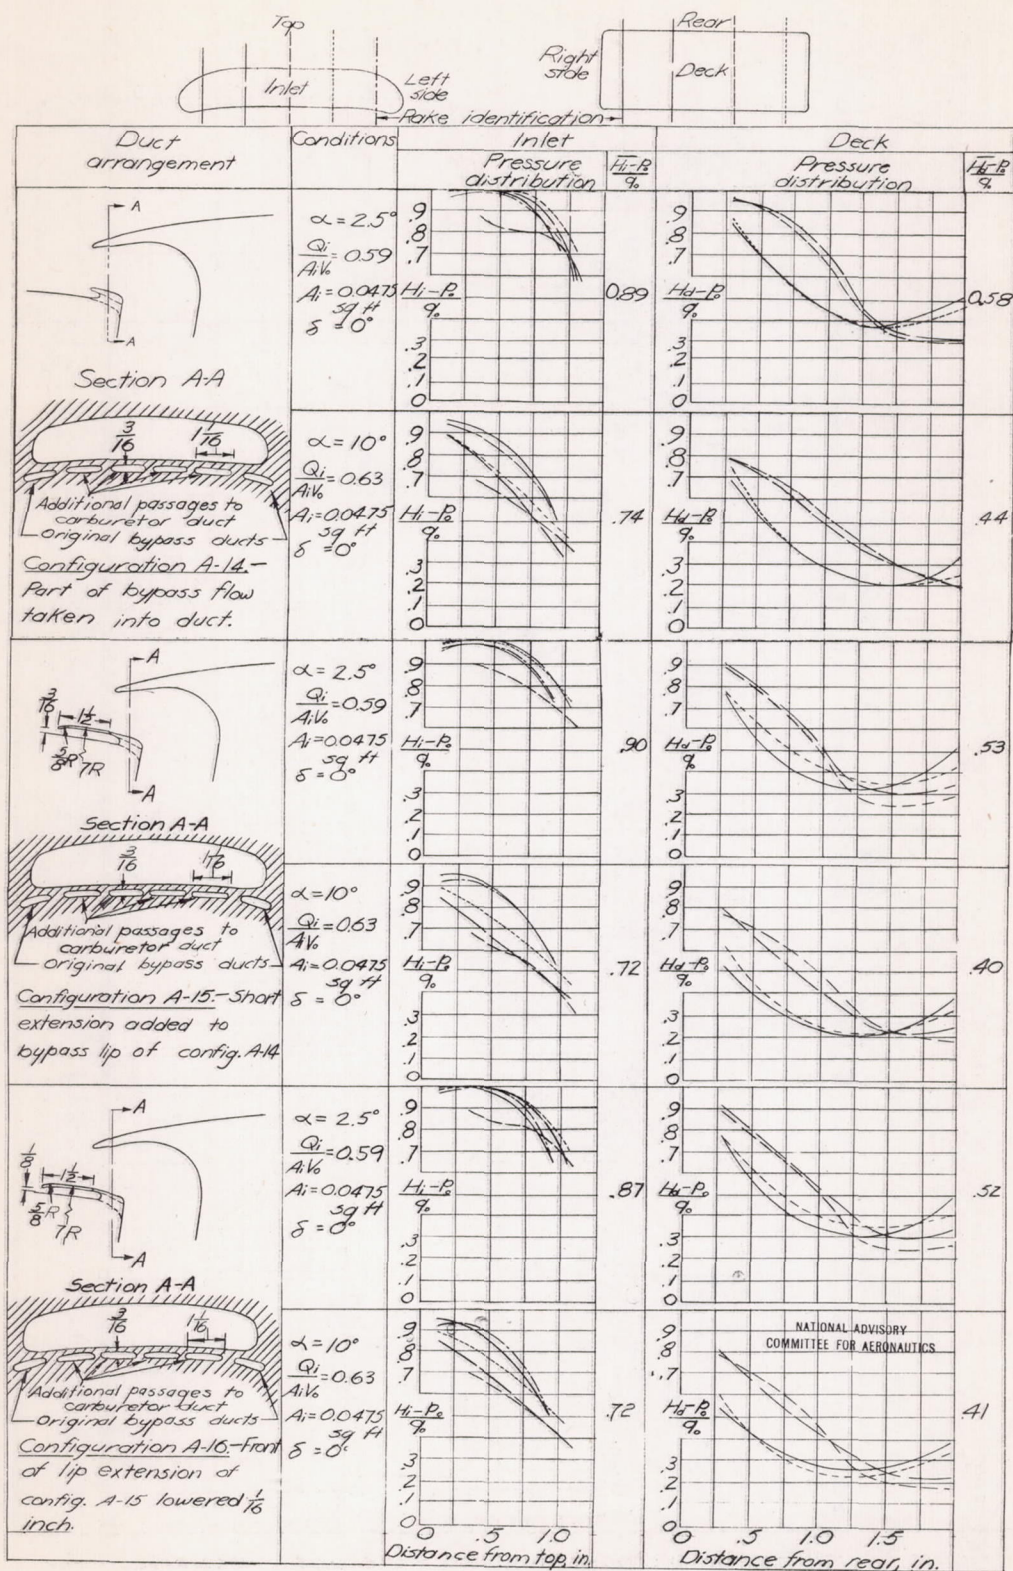 Top
Inlet
Left side
Rake identification
Right side
Rear
Deck
Duct arrangement
Conditions
Inlet
Pressure distribution
H̅i-Po/qo
Deck
Pressure distribution
H̅d-Po/qo
A
A
Section A-A
3/16
1 1/16
Additional passages to carburetor duct
Original bypass ducts
Configuration A-14.-
Part of bypass flow
taken into duct.
α = 2.5°
Qi/AiVo = 0.59
Ai = 0.0475 sq ft
δ = 0°
.9
.8
.7
Hi-Po/qo
.3
.2
.1
0
0.89
.9
.8
.7
Hd-Po/qo
.3
.2
.1
0
0.58
α = 10°
Qi/AiVo = 0.63
Ai = 0.0475 sq ft
δ = 0°
.9
.8
.7
Hi-Po/qo
.3
.2
.1
0
.74
.9
.8
.7
Hd-Po/qo
.3
.2
.1
0
.44
A
3/16
1 1/2
5/8 R
7R
A
Section A-A
3/16
1 1/16
Additional passages to carburetor duct
Original bypass ducts
Configuration A-15.-Short
extension added to
bypass lip of config. A-14
α = 2.5°
Qi/AiVo = 0.59
Ai = 0.0475 sq ft
δ = 0°
.9
.8
.7
Hi-Po/qo
.3
.2
.1
0
.90
.9
.8
.7
Hd-Po/qo
.3
.2
.1
0
.53
α = 10°
Qi/AiVo = 0.63
Ai = 0.0475 sq ft
δ = 0°
.9
.8
.7
Hi-Po/qo
.3
.2
.1
0
.72
.9
.8
.7
Hd-Po/qo
.3
.2
.1
0
.40
A
1/8
1 1/2
5/8 R
7R
A
Section A-A
3/16
1 1/16
Additional passages to carburetor duct
Original bypass ducts
Configuration A-16.-Front
of lip extension of
config. A-15 lowered 1/16
inch.
α = 2.5°
Qi/AiVo = 0.59
Ai = 0.0475 sq ft
δ = 0°
.9
.8
.7
Hi-Po/qo
.3
.2
.1
0
.87
.9
.8
.7
Hd-Po/qo
.3
.2
.1
0
.52
α = 10°
Qi/AiVo = 0.63
Ai = 0.0475 sq ft
δ = 0°
.9
.8
.7
Hi-Po/qo
.3
.2
.1
0
.72
NATIONAL ADVISORY
COMMITTEE FOR AERONAUTICS
.9
.8
.7
Hd-Po/qo
.3
.2
.1
0
.41
0 .5 1.0
Distance from top, in.
0 .5 1.0 1.5
Distance from rear, in.